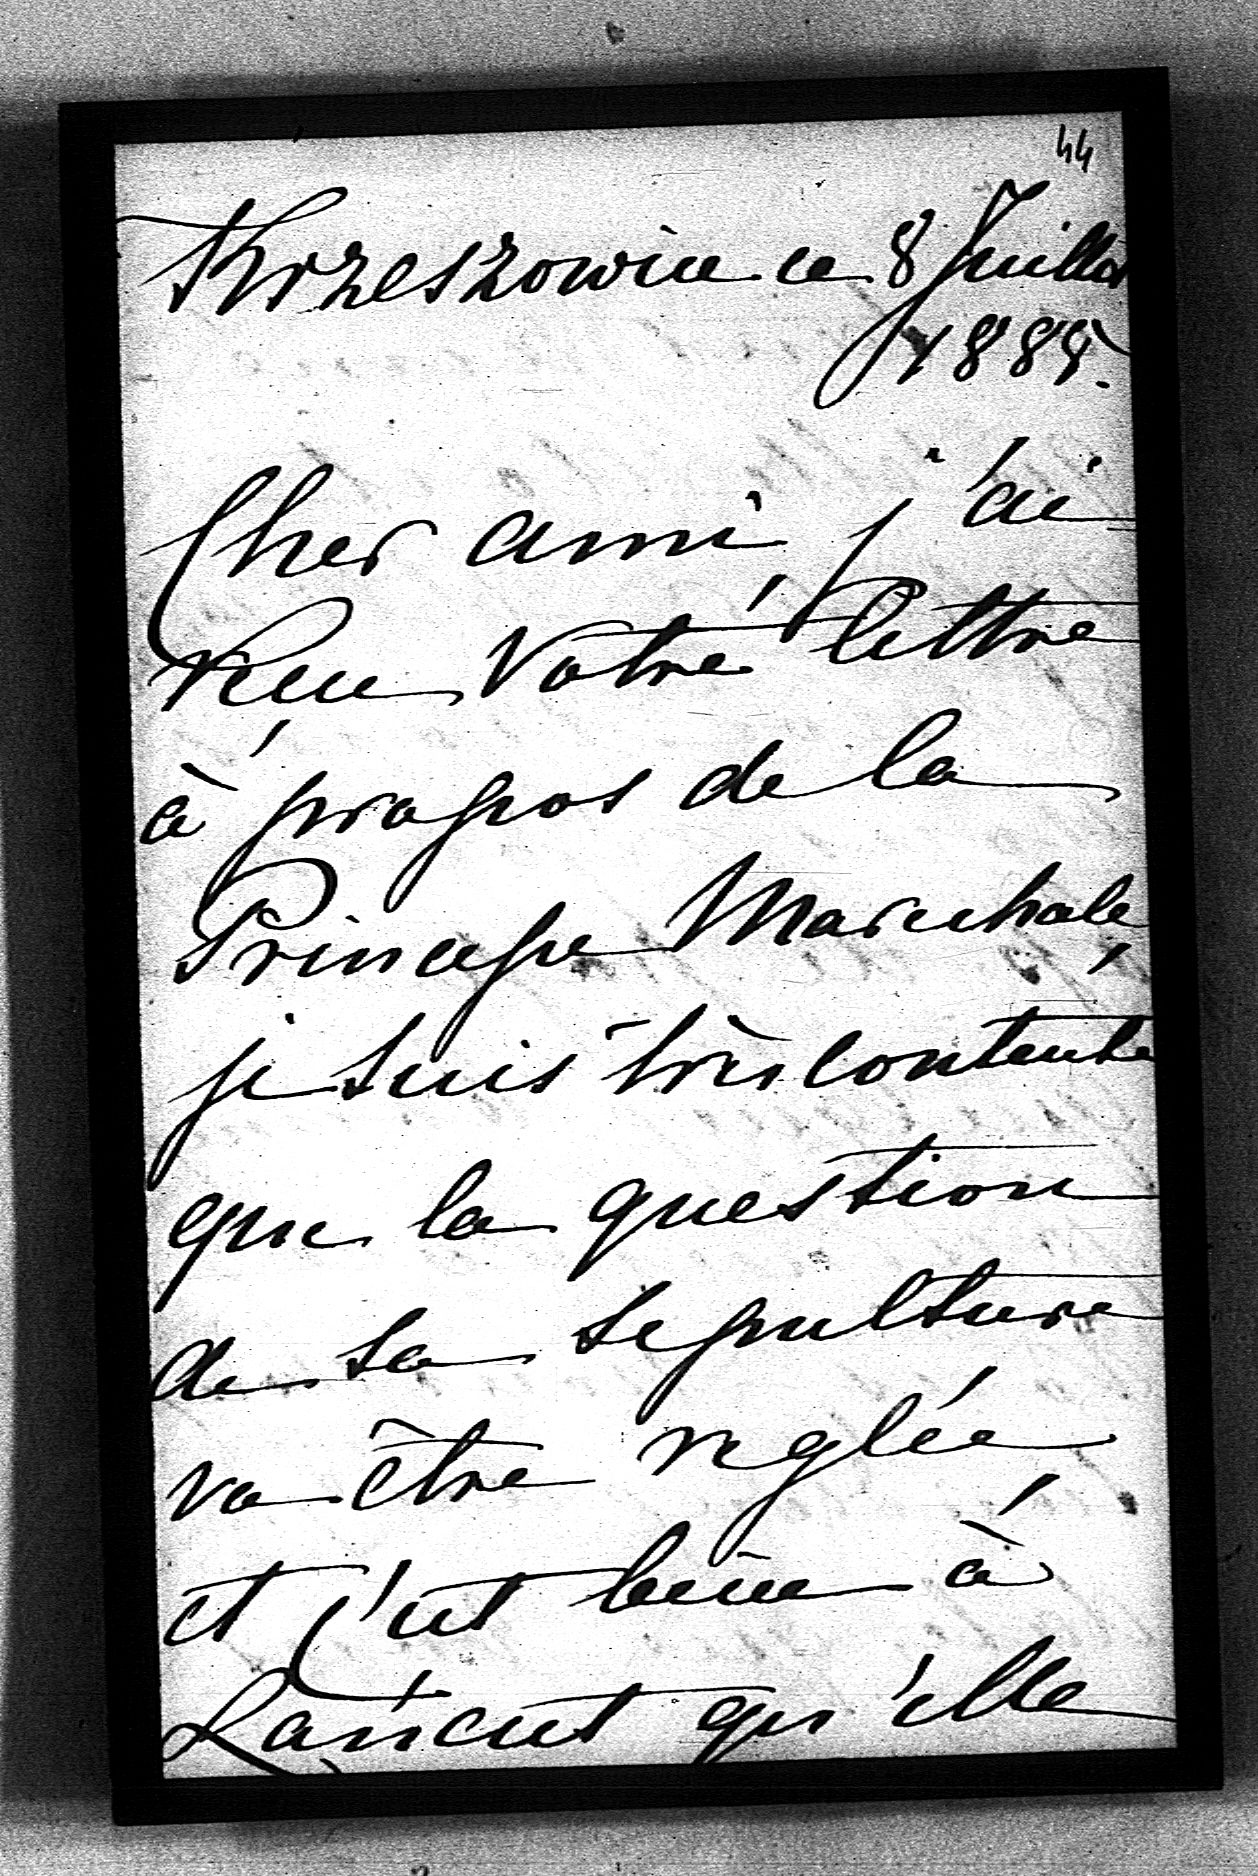 44
Krzeszowice ce 8 Juillet
1888.
Cher ami, j'ai
recu votre lettre
à propos de la
Princesse Marechale,
je suis très contente
que la question
de sa sepulture
va être reglée,
et c'est bien à
Łańcut qu'elle